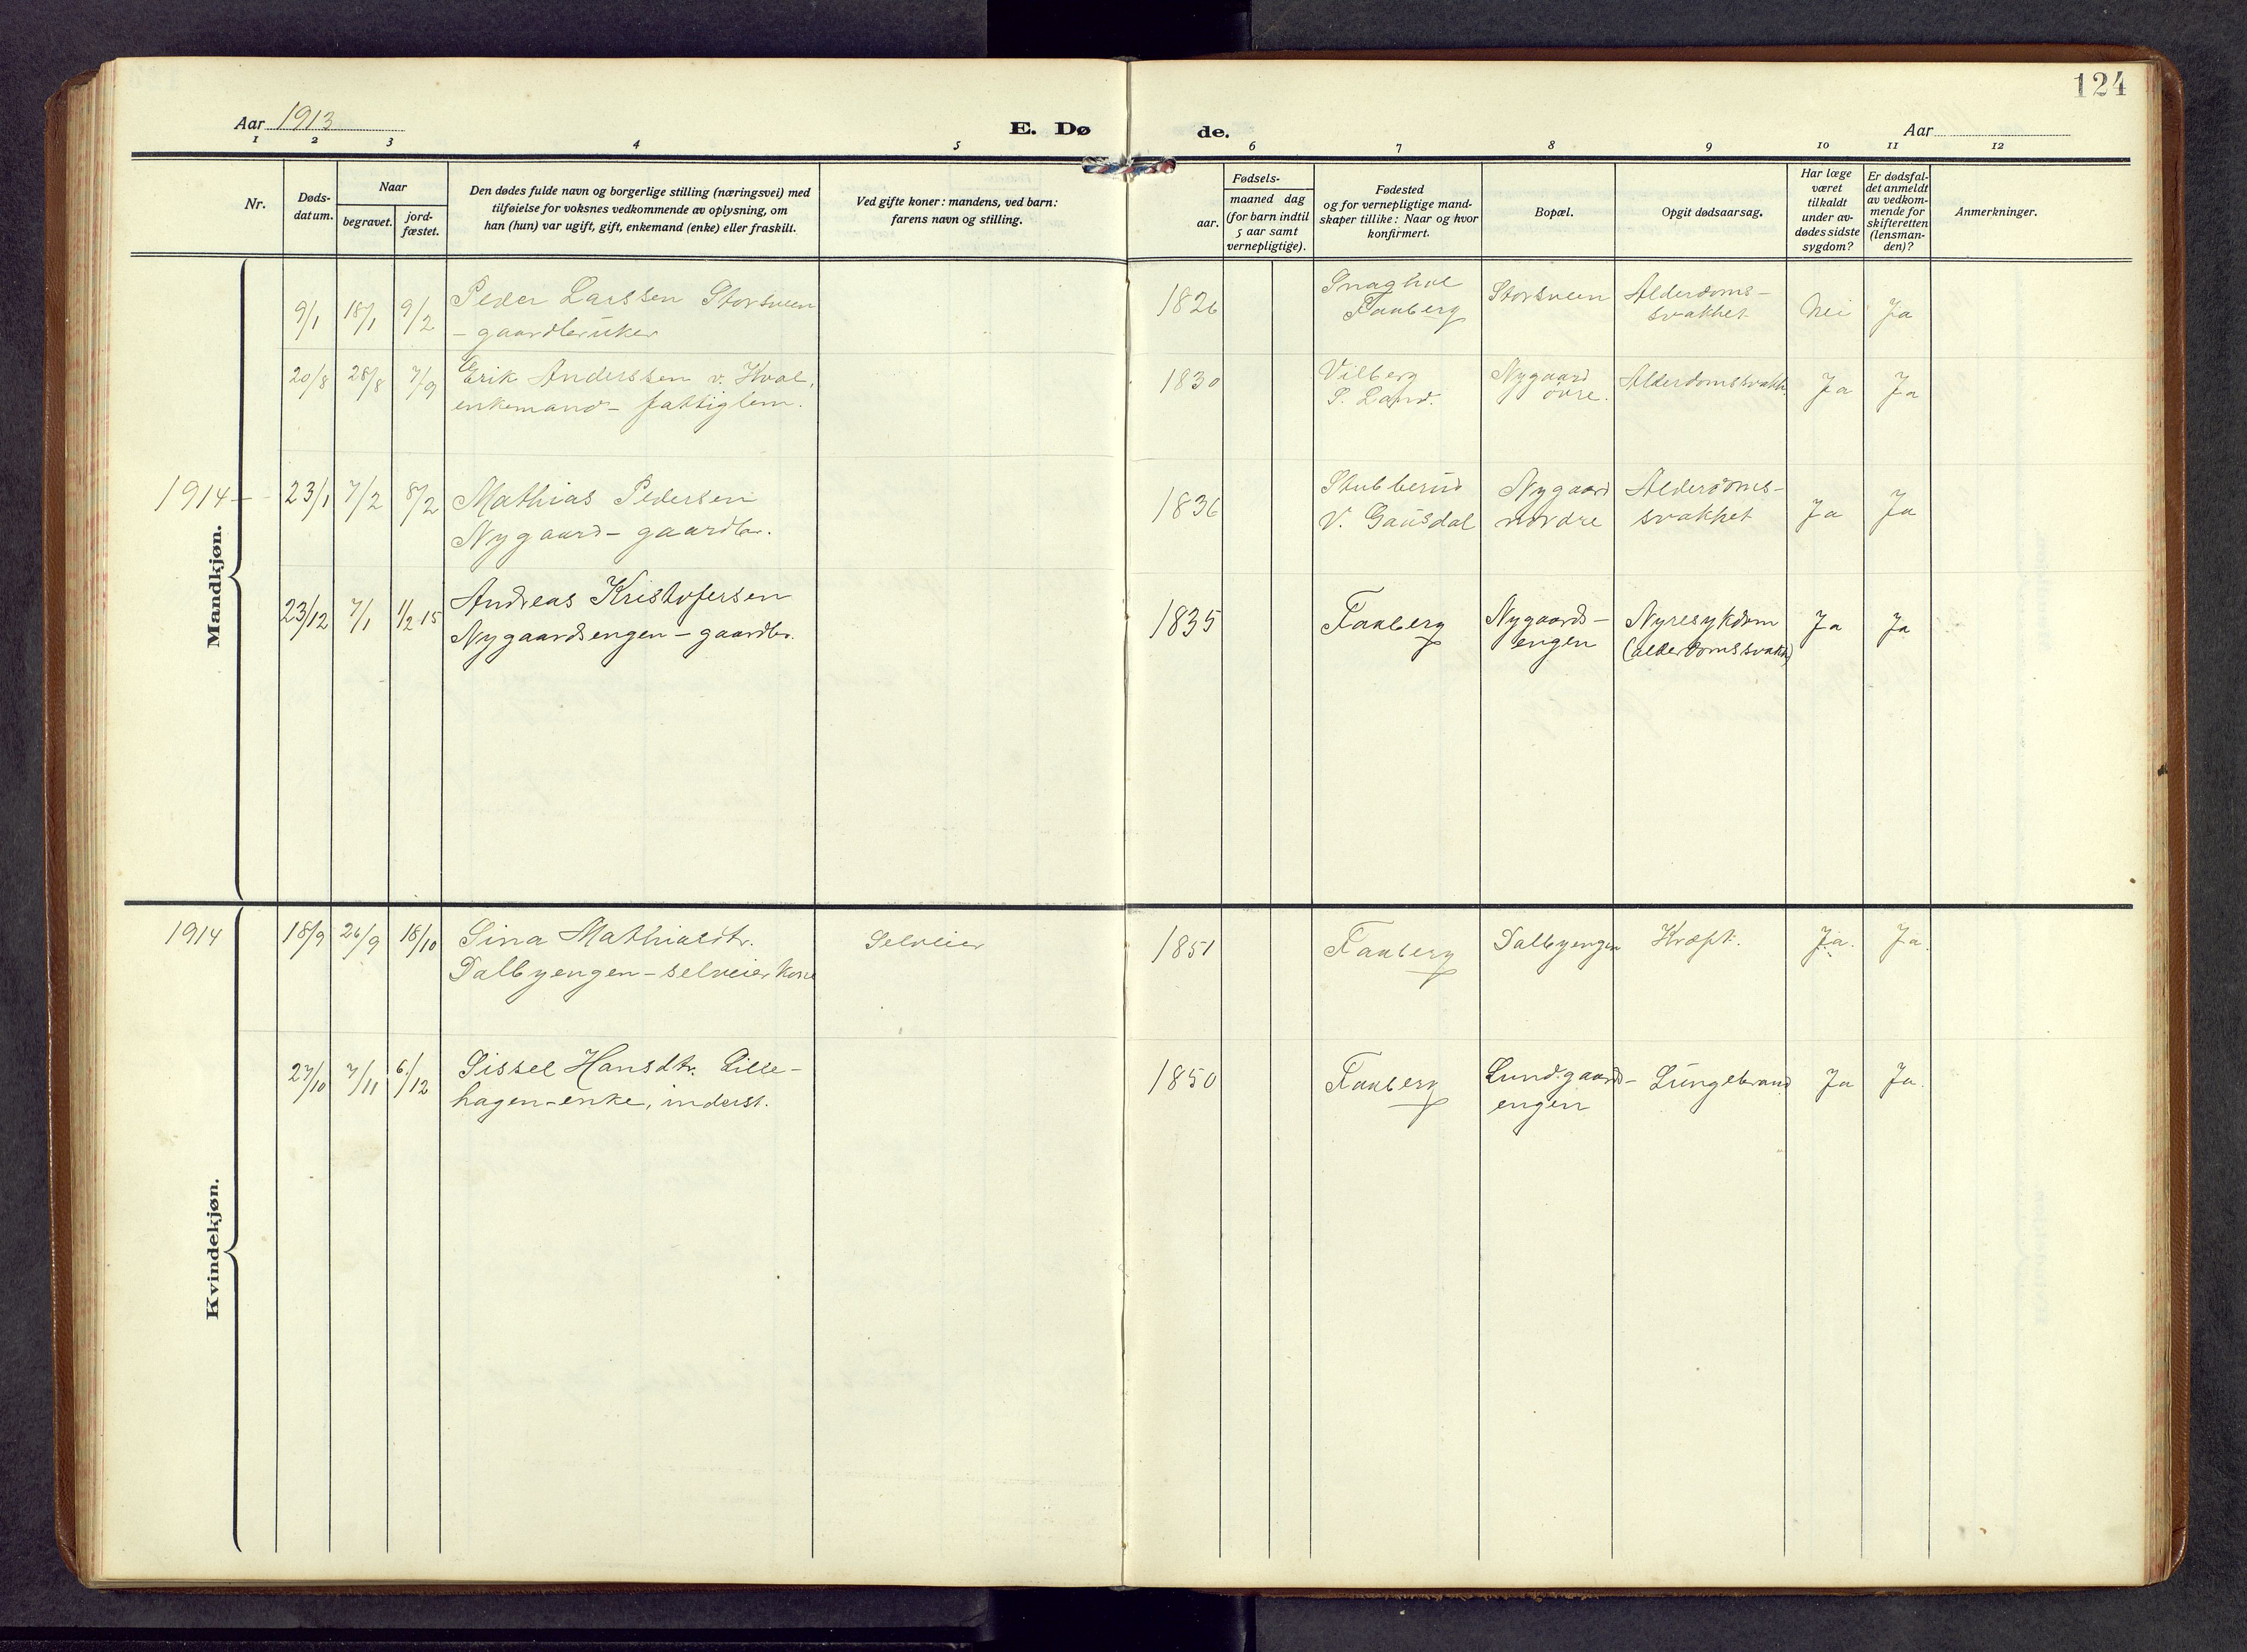 124
Aar 1913
E. Dø
de.
Aar
1 2 3 4 5 6 7 8 9 10 11 12
Nr.
Døds-
datum.
Naar
begravet.
jord-
fæstet.
Den dødes fulde navn og borgerlige stilling (næringsvei) med
tilføielse for voksnes vedkommende av oplysning, om
han (hun) var ugift, gift, enkemand (enke) eller fraskilt.
Ved gifte koner: mandens, ved barn:
farens navn og stilling.
Fødsels-
aar.
maaned dag
(for barn indtil
5 aar samt
vernepligtige).
Fødested
og for vernepligtige mand-
skaper tillike: Naar og hvor
konfirmert.
Bopæl.
Opgit dødsaarsag.
Har læge
været
tilkaldt
under av-
dødes sidste
sygdom?
Er dødsfal-
det anmeldt
av vedkom-
mende for
skifteretten
(lensman-
den)?
Anmerkninger.
Mandkjøn.
9/1 18/1 9/2 Peder Larssen Storsveen
- gaardbruker
1826 Snaghol
Faaberg
Storsveen
Alderdoms-
svakhet
Nei Ja
20/8 28/8 7/9 Erik Anderssen v. Hval,
enkemand - fattiglem.
1830 Vilberg
S. Land.
Nygaard
övre.
Alderdomssvakh.
Ja Ja
1914 - 23/1 7/2 8/2 Mathias Pedersen
Nygaard - gaardbr.
1836 Stubberud
V. Gausdal
Nygaard
nordre
Alderdoms-
svakhet
Ja Ja
23/12 7/1 1/2 15 Andreas Kristofersen
Nygaardsengen - gaardbr.
1835 Faaberg
Nygaards-
engen
Nyresykdom
(alderdomssvakh)
Ja Ja
Kvindekjøn.
1914 18/9 26/9 18/10 Sina Mathiasdtr.
Dalbyengen - selveier kone
Selveier
1851 Faaberg Dalbyengen Kræft. Ja. Ja.
27/10 7/11 6/12 Sissel Hansdtr. Lille-
hagen - enke, inderst.
1850 Faaberg Lundgaards-
engen
Lungebrand Ja Ja.